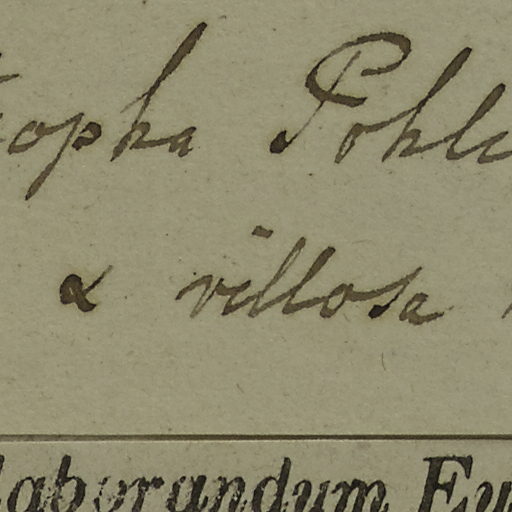 topha Pohl
α villosa
laborandum Eu